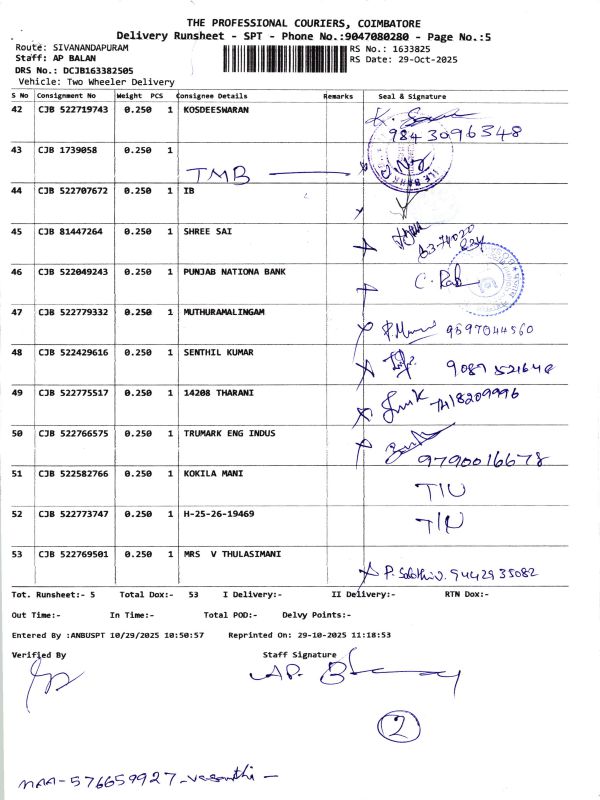 THE PROFESSIONAL COURIERS, COIMBATORE
Delivery Runsheet - SPT - Phone No.:9047080280 - Page No.:5
Route: SIVANANDAPURAM RS No.: 1633825
Staff: AP BALAN RS Date: 29-Oct-2025
DRS No.: DCJB163382505
Vehicle: Two Wheeler Delivery
S No Consignment No Weight PCS Consignee Details Remarks Seal & Signature
42 CJB 522719743 0.250 1 KOSDEESWARAN
9843096348
43 CJB 1739058 0.250 1
TMB
44 CJB 522707672 0.250 1 IB
45 CJB 81447264 0.250 1 SHREE SAI
46 CJB 522049243 0.250 1 PUNJAB NATIONA BANK
47 CJB 522779332 0.250 1 MUTHURAMALINGAM
48 CJB 522429616 0.250 1 SENTHIL KUMAR
49 CJB 522775517 0.250 1 14208 THARANI
50 CJB 522766575 0.250 1 TRUMARK ENG INDUS
9790016678
51 CJB 522582766 0.250 1 KOKILA MANI
52 CJB 522773747 0.250 1 H-25-26-19469
53 CJB 522769501 0.250 1 MRS V THULASIMANI
9442935082
Tot. Runsheet:- 5 Total Dox:- 53 I Delivery:- II Delivery:- RTN Dox:-
Out Time:- In Time:- Total POD:- Delvy Points:-
Entered By :ANBUSPT 10/29/2025 10:50:57 Reprinted On: 29-10-2025 11:18:53
Verified By Staff Signature
2
MAA-576659927-vasanthi-